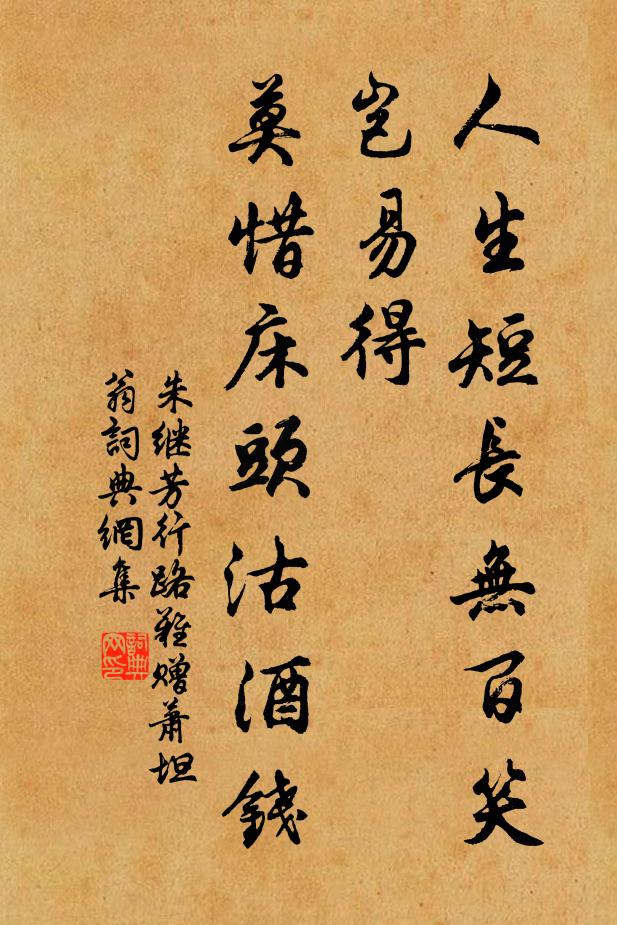 人生短長無百笑
岂易得
莫惜床頭沽酒錢
朱继芳行路難赠萧坦
翁詞典網集
詞典网印